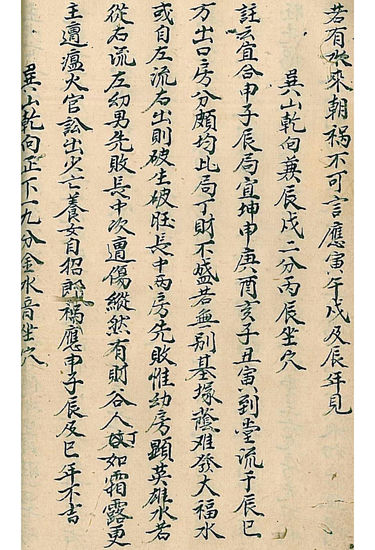 若有水來朝禍不可言應寅午戌及辰年見
巽山乾向兼辰戌二分丙辰坐穴
註云宜合申子辰局宜坤申庚酉亥子丑寅到堂流于辰巳
方出口房分頗均比局丁財不盛若無別基塚蔭难發大福水
或自左流右出則破生破旺長中两房先敗惟幼房顕英雄水若
從右流左幼男先敗長中次遭傷縱然有財谷人丁如霜露更
主遭瘟火官訟出少亡養女自招郎禍應申子辰及巳年不吉
巽山乾向正下一九分金水音坐穴